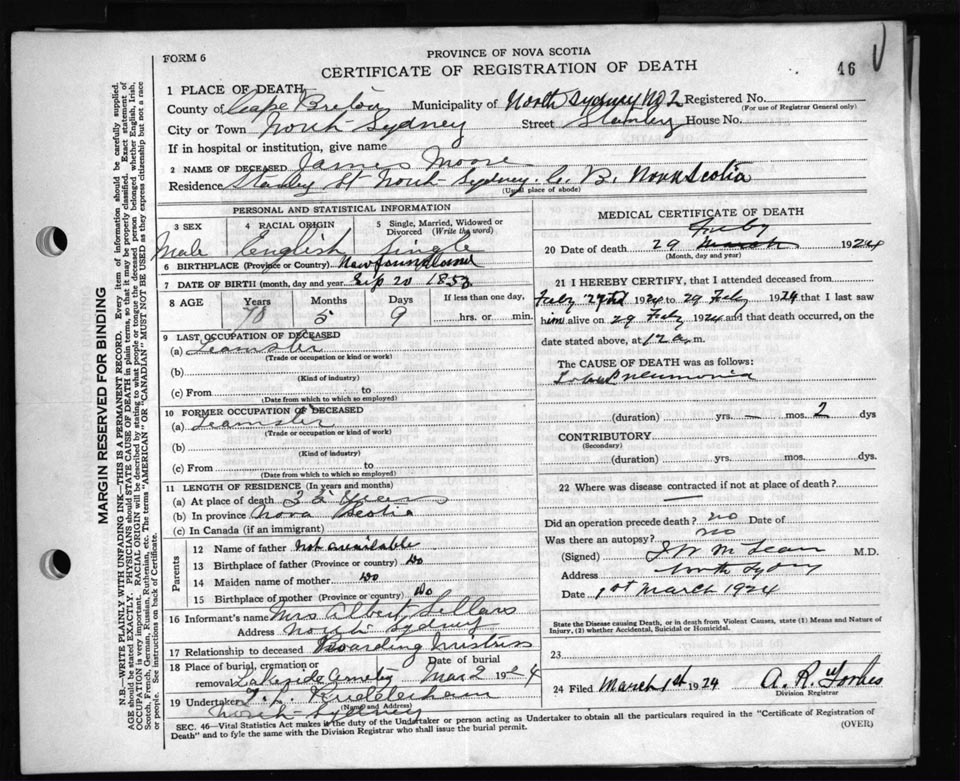 FORM 6
PROVINCE OF NOVA SCOTIA
CERTIFICATE OF REGISTRATION OF DEATH
46
1 PLACE OF DEATH
County of Cape Breton Municipality of North Sydney No 2 Registered No.
(For use of Registrar General only)
City or Town North Sydney Street Stanley House No.
If in hospital or institution, give name
2 NAME OF DECEASED James Moore
Residence Stanley St North Sydney. C. B. Nova Scotia
(Usual place of abode)
PERSONAL AND STATISTICAL INFORMATION
3 SEX
Male
4 RACIAL ORIGIN
English
5 Single, Married, Widowed or Divorced (Write the word)
Single
6 BIRTHPLACE (Province or Country) Newfoundland
7 DATE OF BIRTH (month, day and year) Sep 20 1853
8 AGE Years Months Days If less than one day,
5 9 hrs. or min.
9 LAST OCCUPATION OF DECEASED
(a) Teamster
(Trade or occupation or kind or work)
(b)
(Kind of industry)
(c) From to
(Date from which to which so employed)
10 FORMER OCCUPATION OF DECEASED
(a) Teamster
(Trade or occupation or kind of work)
(b)
(Kind of industry)
(c) From to
(Date from which to which so employed)
11 LENGTH OF RESIDENCE (In years and months)
(a) At place of death years
(b) In province Nova Scotia
(c) In Canada (if an immigrant)
Parents
12 Name of father Not available
13 Birthplace of father (Province or country) Do
14 Maiden name of mother Do
15 Birthplace of mother (Province or country) Do
16 Informant's name Mrs Albert Sellars
Address North Sydney
17 Relationship to deceased Boarding Mistress
18 Place of burial, cremation or removal Lakeside Cemetery Date of burial Mar 2 1924
19 Undertaker F. L.
(Name and Address)
North Sydney
MEDICAL CERTIFICATE OF DEATH
20 Date of death 29 March Feby 1924
(Month, day and year)
21 I HEREBY CERTIFY, that I attended deceased from
Feby 27th 1924 to 29 Feby 1924 that I last saw
him alive on 29 Feby 1924 and that death occurred, on the
date stated above, at 12 a.m.
The CAUSE OF DEATH was as follows:
Lobar Pneumonia
(duration) yrs. — mos. 2 dys
CONTRIBUTORY
(Secondary)
(duration) yrs. mos. dys.
22 Where was disease contracted if not at place of death?
Did an operation precede death? no Date of
Was there an autopsy? no
(Signed) M.D.
Address North Sydney
Date 1st March 1924
State the Disease causing Death, or in death from Violent Causes, state (1) Means and Nature of
Injury, (2) whether Accidental, Suicidal or Homicidal.
23
24 Filed March 1st 1924 A. R. Forbes
Division Registrar
SEC. 46—Vital Statistics Act makes it the duty of the Undertaker or person acting as Undertaker to obtain all the particulars required in the "Certificate of Registration of
Death" and to fyle the same with the Division Registrar who shall issue the burial permit.
(OVER)
MARGIN RESERVED FOR BINDING
N.B.—WRITE PLAINLY WITH UNFADING INK—THIS IS A PERMANENT RECORD. Every item of information should be carefully supplied.
AGE should be stated EXACTLY. PHYSICIANS should STATE CAUSE OF DEATH in plain terms, so that it may be properly classified. Exact statement of
OCCUPATION is very important. RACIAL ORIGIN will be described by stating to what people or tongue the deceased person belonged whether English, Irish,
Scotch, French, German, Russian, Ruthenian, etc. The terms "AMERICAN" OR "CANADIAN" MUST NOT BE USED as they express citizenship but not a race
or people. See instructions on back of Certificate.